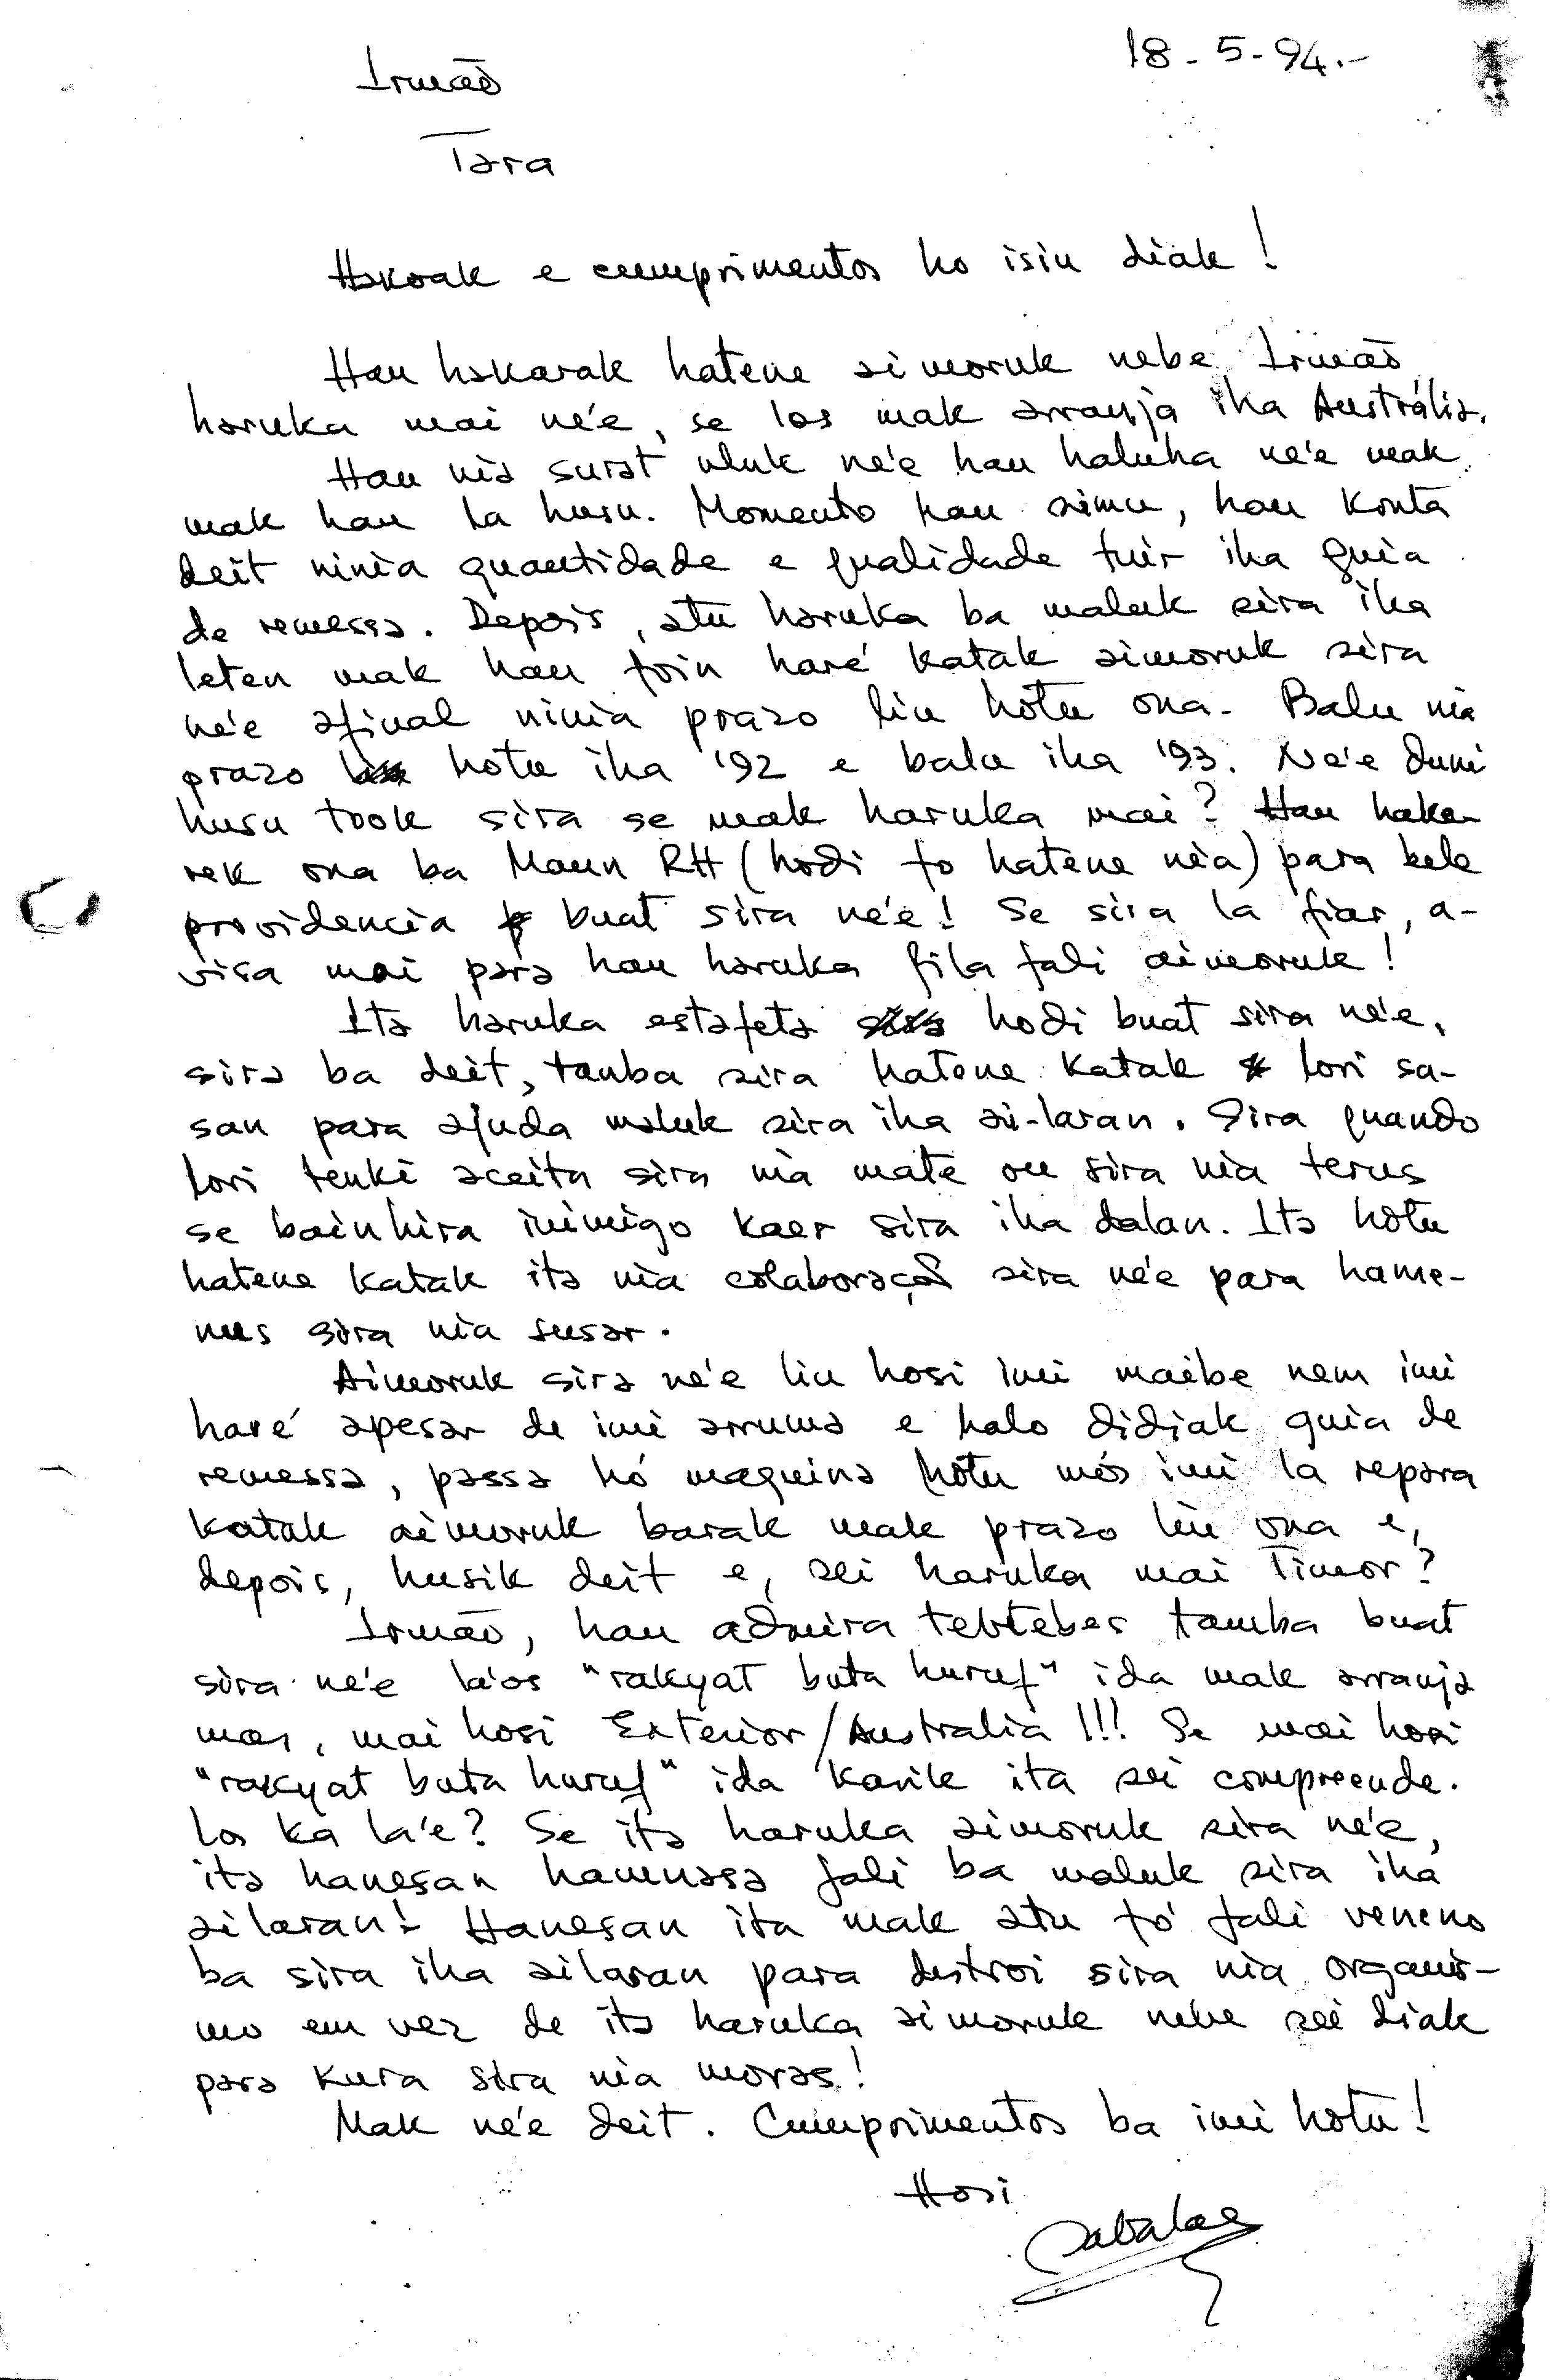 18-5-94.-
Irmão
Tara
Hakoak e cumprimentos ho isin diak!
Hau hakarak hatene aimoruk nebe Irmão
haruka mai né'e, se los mak arranja iha Austrália.
Hau nia surat uluk né'e hau haluha né'e mak
mak hau la husu. Momento hau simu, hau konta
deit ninia quantidade e qualidade tuir iha guia
de remessa. Depois, atu haruka ba maluk sira iha
leten mak hau foin haré katak aimoruk sira
né'e afinal ninia prazo liu hotu ona. Balu nia
prazo hotu iha '92 e balu iha '93. Né'e duni
husu took sira se mak haruka mai? Hau hake-
rek ona ba Maun RH (hodi fo hatene nia) para bele
providencia buat sira né'e! Se sira la fiar, a-
visa mai para hau haruka fila fali aimoruk!
Ita haruka estafeta hodi buat sira né'e,
sira ba deit, tanba sira hatene katak lori sa-
san para ajuda maluk sira iha ai-laran. Sira quando
lori tenki aceita sira nia mate ou sira nia terus
se bainhira inimigo kaer sira iha dalan. Ita hotu
hatene katak ita nia colaboração sira né'e para hame-
nus sira nia susar.
Aimoruk sira né'e liu hosi imi maibe nem imi
haré apesar de imi arruma e halo didiak guia de
remessa, passa hó maquina hotu mós imi la repara
katak aimoruk barak mak prazo liu ona e,
depois, husik deit e, sei haruka mai Timor?
Irmão, hau admira tebtebes tamba buat
sira né'e la'os "rakyat buta huruf" ida mak arranja
mas, mai hosi Exterior/Australia!!! Se mai hosi
"rakyat buta huruf" ida karik ita sei compreende.
Los ka la'e? Se ita haruka aimoruk sira né'e,
ita hanesan hamnasa fali ba maluk sira iha
ailaran! Hanesan ita mak atu fó fali veneno
ba sira iha ailaran para destroi sira nia organis-
mo em vez de ita haruka aimoruk nebe sei diak
para kura sira nia moras!
Mak né'e deit. Cumprimentos ba imi hotu!
Hosi
Sabalae